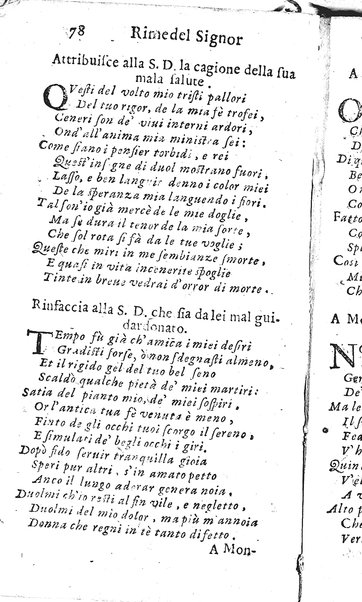 78 Rime del Signor
Attribuisce alla S. D. la cagione della sua
mala salute.
QVesti del volto mio tristi pallori
Del tuo rigor, de la mia fè trofei,
Ceneri son de' vivi interni ardori,
Ond'all'anima mia ministra sei:
Come siano i pensier torbidi, e rei
Quest'insegne di duol mostrano fuori,
Lasso, e ben languir denno i color miei
De la speranza mia languendo i fiori.
Tal son'io già mercède le mie doglie,
Ma su dura il tenor de la mia sorte,
Che sol rota si fà da le tue voglie;
Queste che miri in me sembianze smorte,
E quasi in vita incenerite spoglie
Tinte in breve vedrai d'orror di morte.
Rinfaccia alla S. D. che sia da lei mal gui-
dardonato.
TEmpo fù già ch'amica i miei desiri
Gradisti forse, ò non sdegnasti almeno,
Et il rigido gel del tuo bel seno
Scaldò qualche pietà de' miei martiri:
Satia del pianto mio, de' miei sospiri.
Or l'antica tua fè venuta è meno,
Finto de gli occhi tuoi scorgo il sereno,
E simulati de' begli occhi i giri.
Dopò fido servir tranquilla gioia
Speri pur altri, s'in amato petto
Anco il lungo adorar genera noia.
Duolmi ch'io resti al fin vile, e negletto,
Duolmi del mio dolor, ma più m'annoia
Donna che regni in tè tanto difetto.
A Mon-